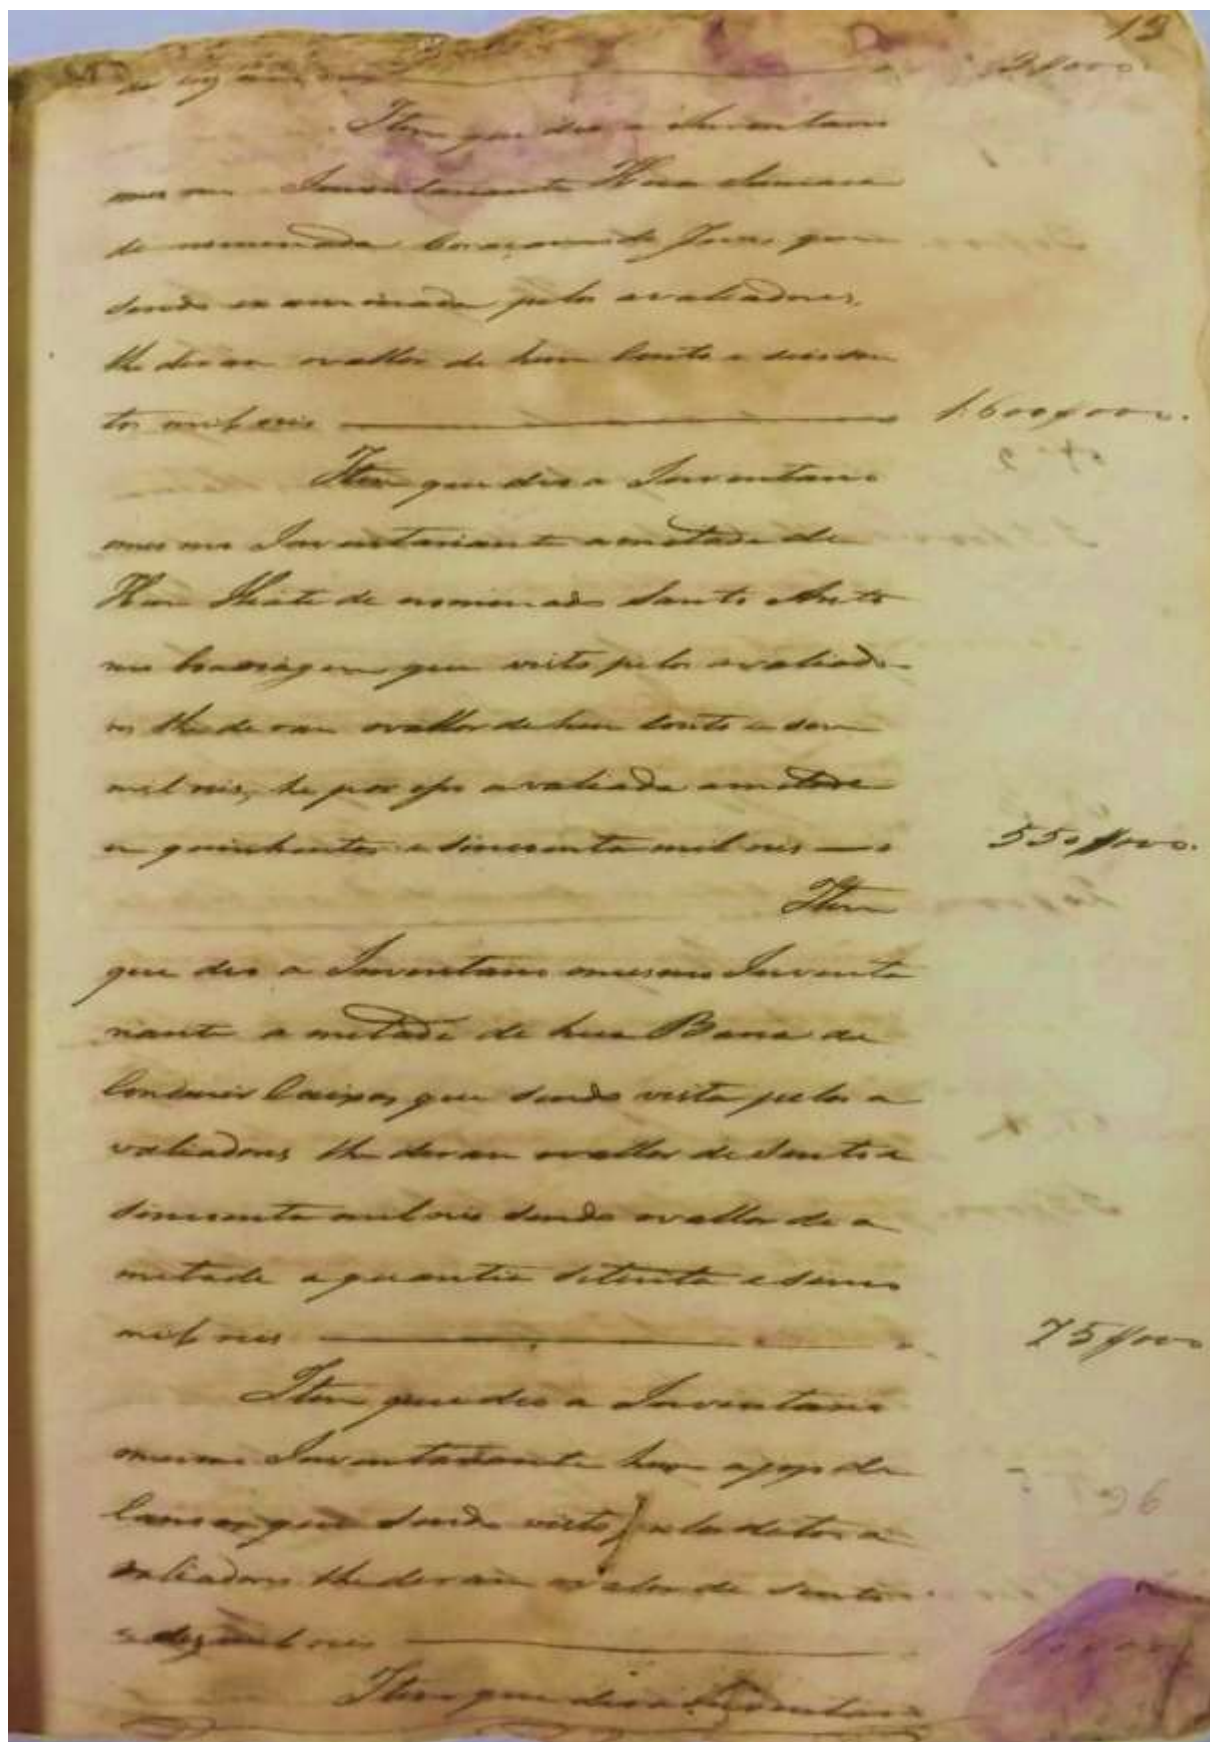 13
Item que deo a Inventario
mesmo Inventariante Huma
denominada Coraçam de Jezus que
sendo examinada pelos avaliadores,
lhe deram o vallor de hum Conto e seissen
tos mil reis 1:600$000.
Item que deo a Inventari
o mesmo Inventariante ametade de
Hum Hiate denominado Santo Anto
nio que visto pelos avaliado
res lhe deram o vallor de hum conto e sem
mil reis, he por iso avaliada ametade
em quinhentos e sincoenta mil reis 550$000.
Item
que deo a Inventario o mesmo Inventa
riante a metade de hua Barca de
Conduzir Caixas que sendo vista pelos a
valiadores lhe deram o vallor de sento e
sincoenta mil reis sendo o vallor de a
metade a quantia setenta e sinco
mil reis 75$000
Item que deo a Inventario
o mesmo Inventariante
que sendo visto pelos ditos a
valiadores lhe deram o valor de sento
e dez mil reis
Item que deo a Inventario